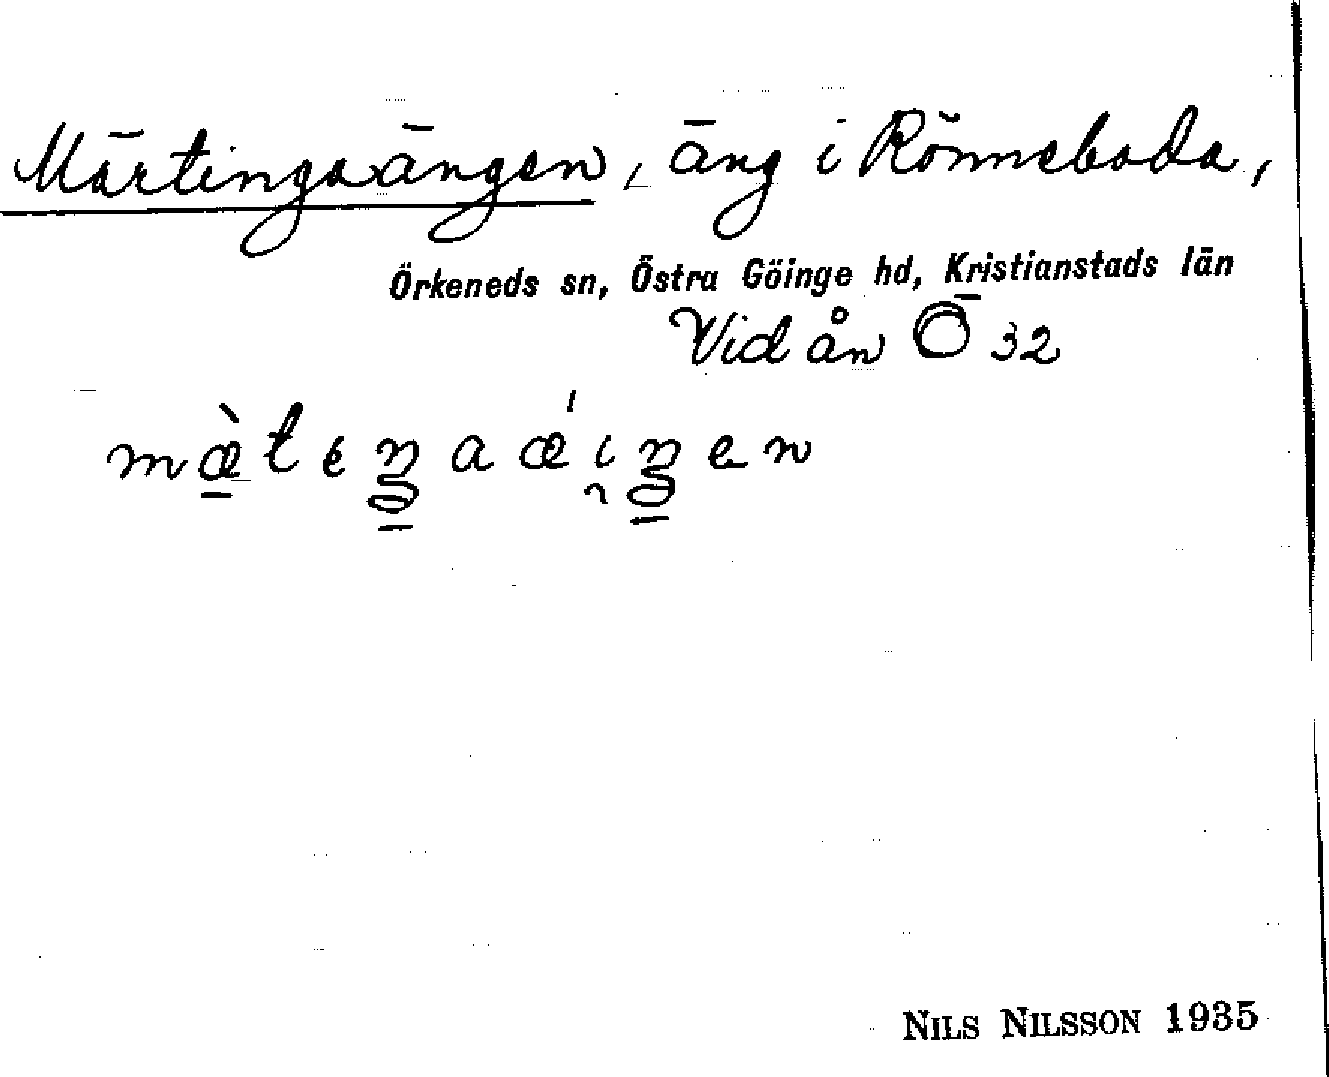 Märtingaängen, äng i Rönneboda,
Örkeneds sn, Östra Göinge hd, Kristianstads län
Vid ån Ö 32
mæ̀teŋaǽiŋen
NILS NILSSON 1935